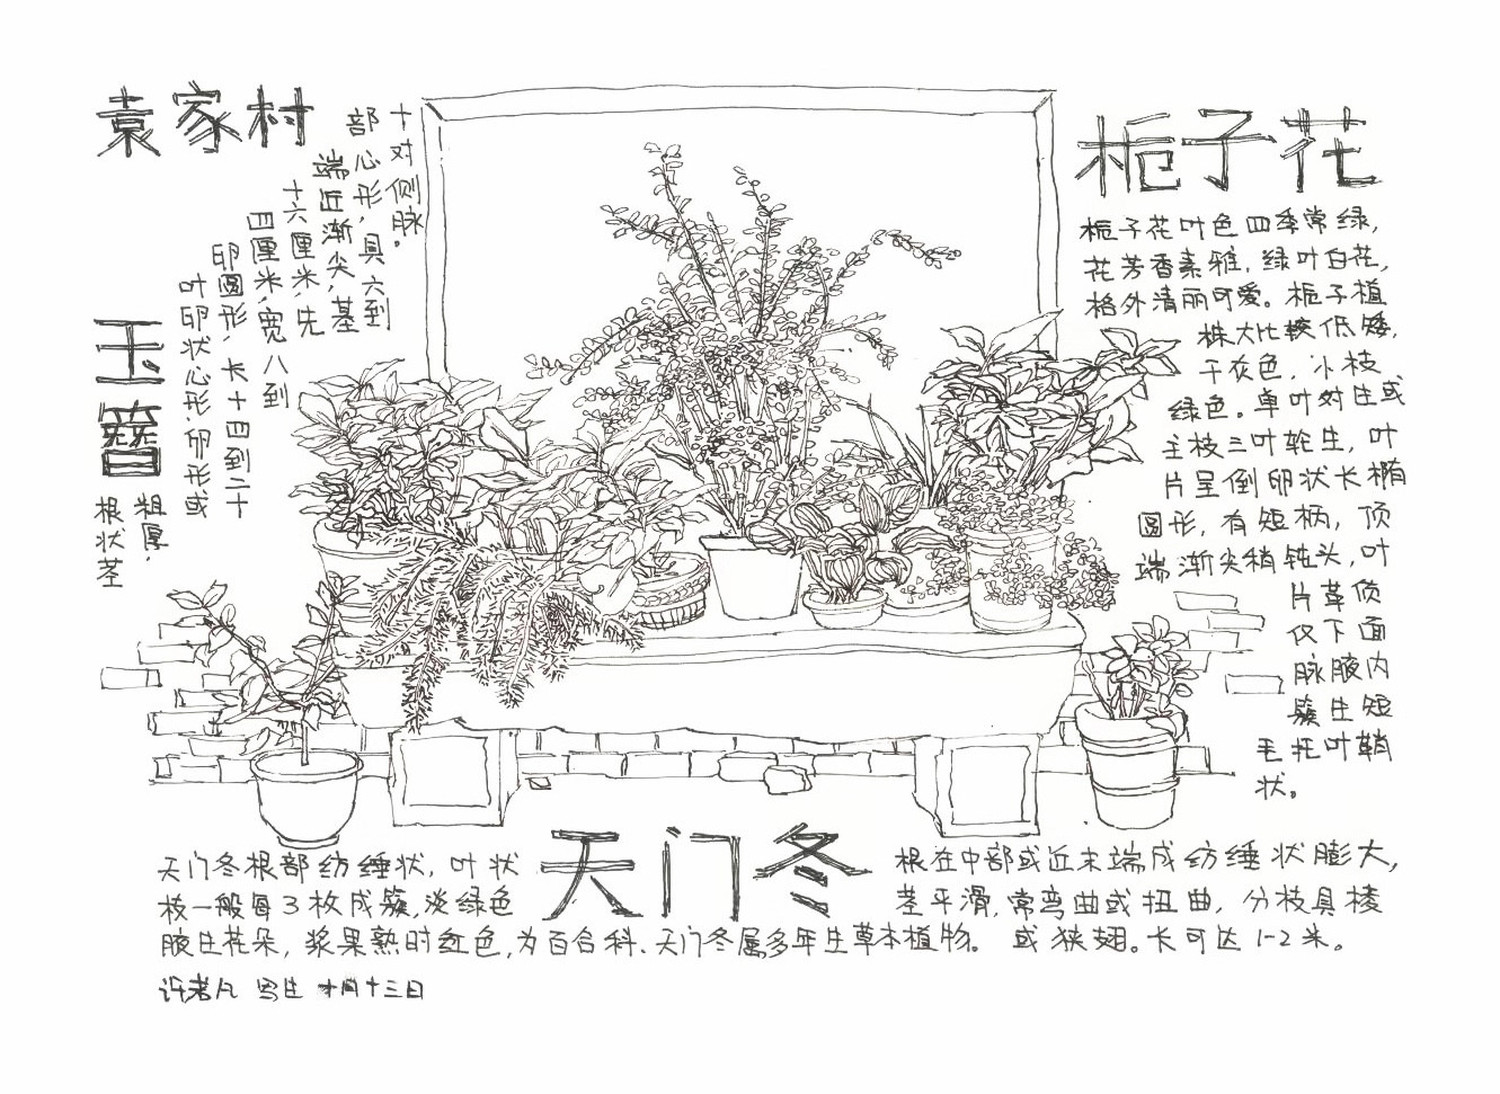 袁家村
玉簪
根状茎
粗厚，
叶卵状心形.卵形或
卵圆形，长十四到二十
四厘米，宽八到
十六厘米，先
端近渐尖，基
部心形，具六到
十对侧脉。
栀子花
栀子花叶色四季常绿，
花芳香素雅，绿叶白花，
格外清丽可爱。栀子植
株大比较低矮，
干灰色，小枝
绿色。单叶对生或
主枝三叶轮生，叶
片呈倒卵状长椭
圆形，有短柄，顶
端渐尖稍钝头，叶
片革质
仅下面
脉腋内
簇生短
毛托叶鞘
状。
天门冬
天门冬根部纺缍状，叶状
枝一般每3枚成簇，淡绿色
腋生花朵，浆果熟时红色，为百合科、天门冬属多年生草本植物。
根在中部或近末端成纺缍状膨大，
茎平滑，常弯曲或扭曲，分枝具棱
或狭翅。长可达1-2米。
许老凡 写生 十月十三日